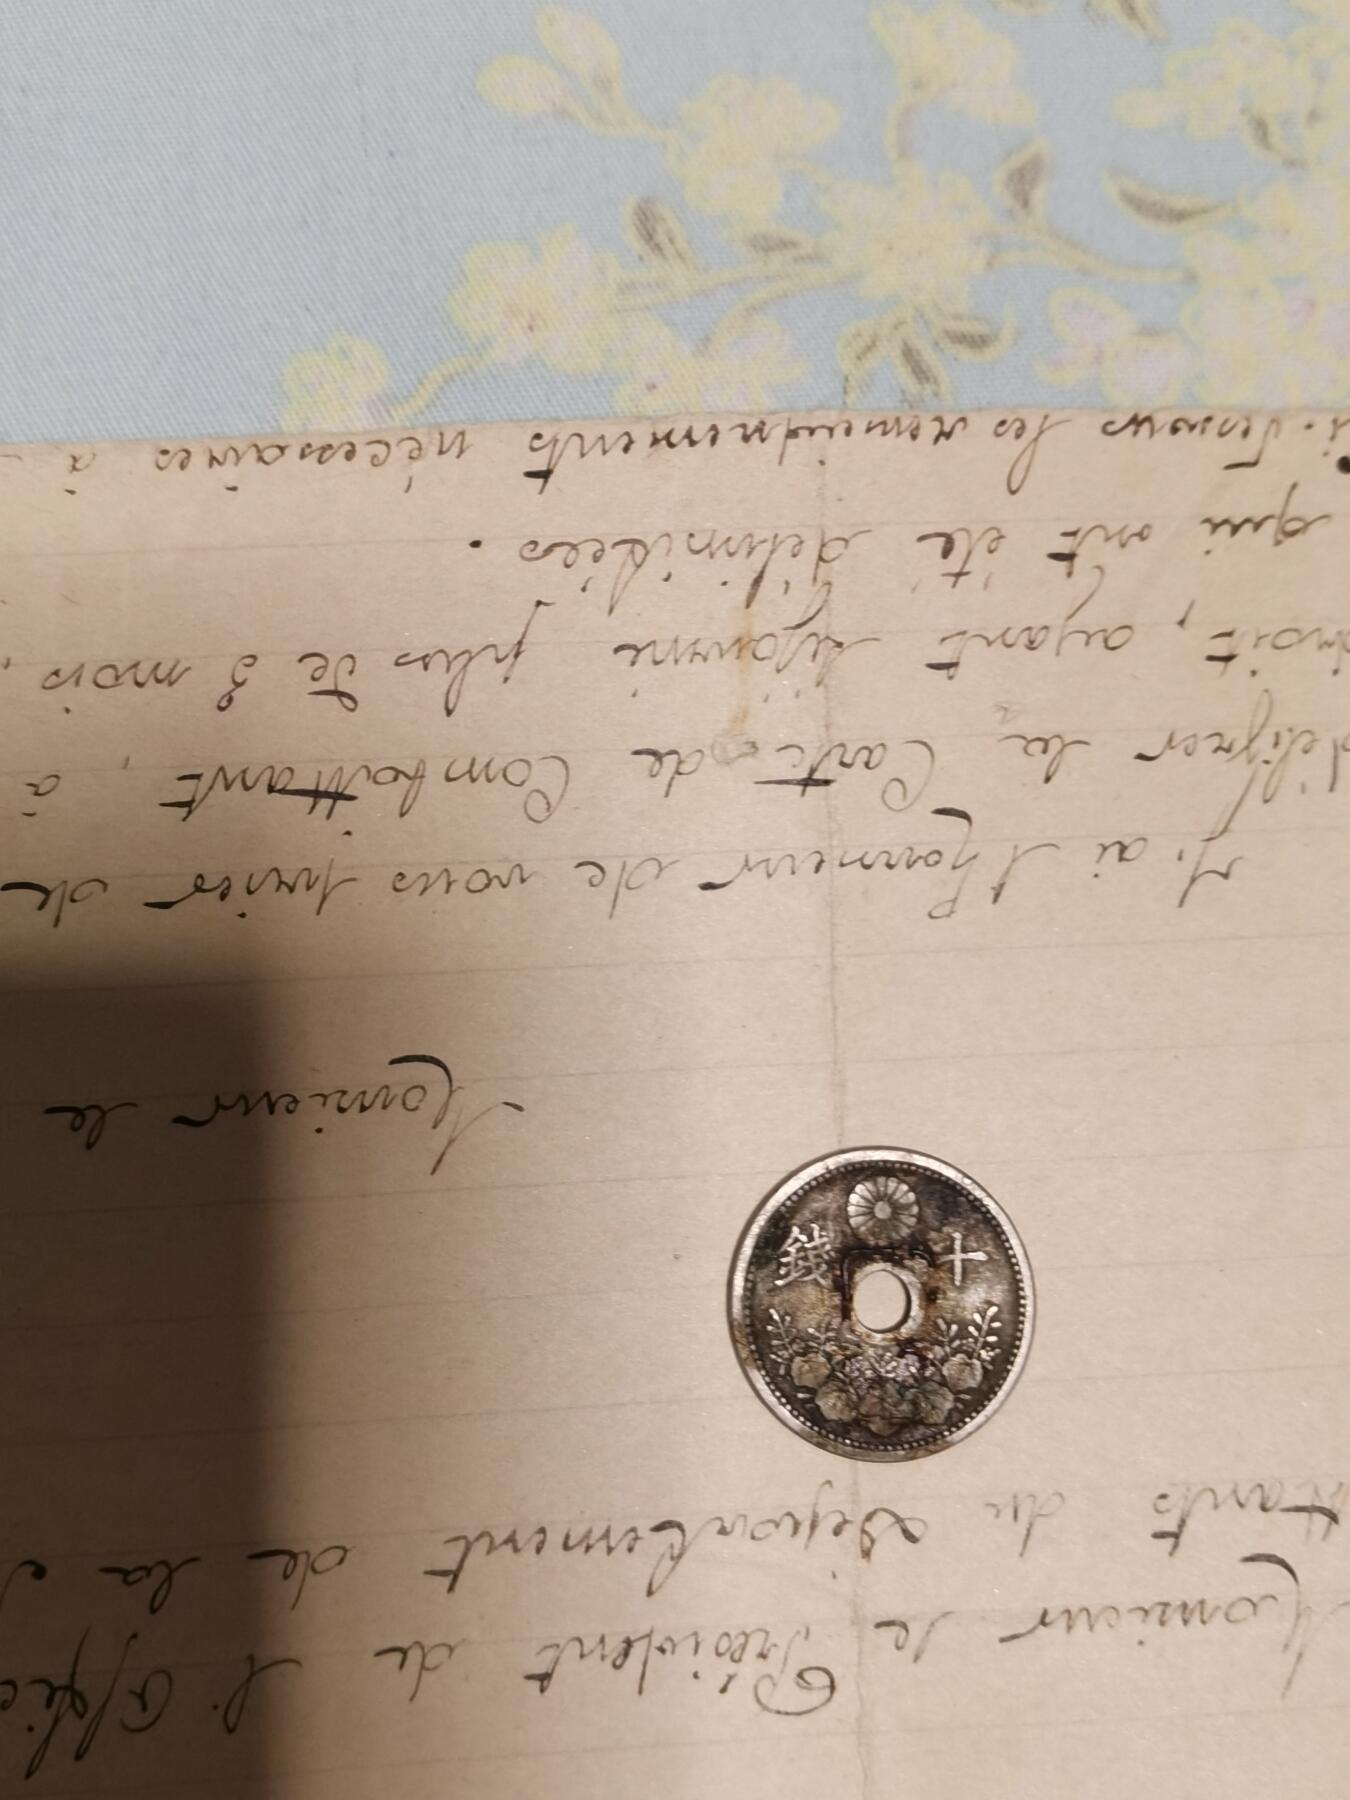 Monsieur le Président de l'Offic
ttants du Département de la
Monsieur le
J'ai l'honneur de vous prier de
délivrer la Carte de Combattant, à
droit, ayant séjourné plus de 3 mois,
qui ont été délimitées.
Ci-dessous les renseignements nécessaires à
十錢